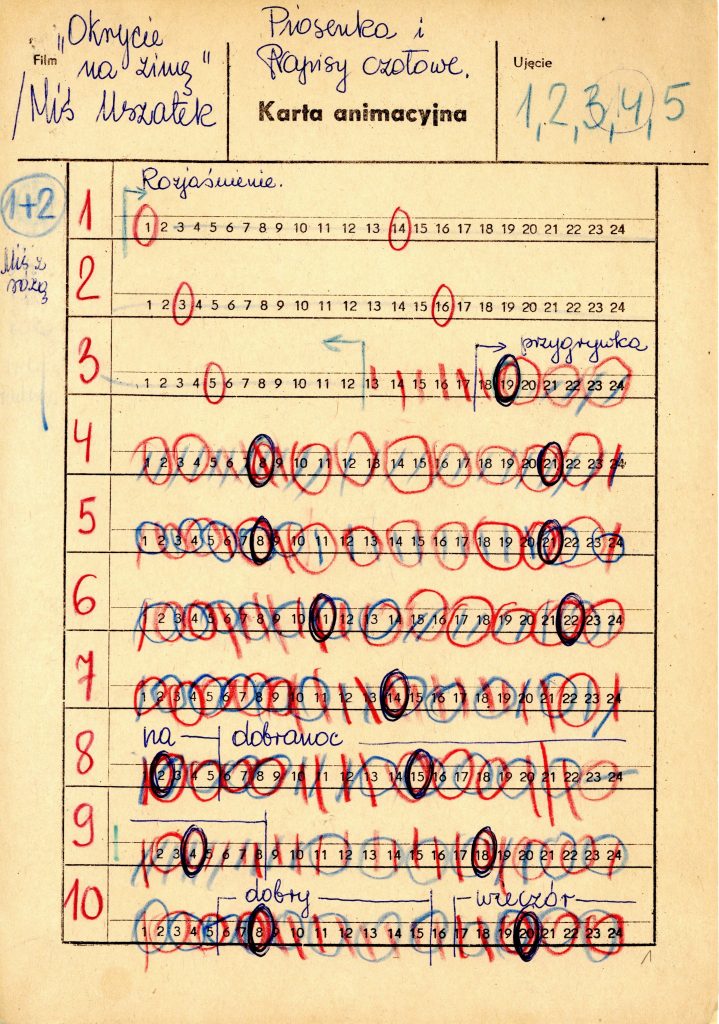 Film „Okrycie na zimę"
/Miś Uszatek
Piosenka i
Napisy czołowe.
Karta animacyjna
Ujęcie
1, 2, 3, 4, 5
1+2
Miś z
Rozjaśnienie.
1
1 2 3 4 5 6 7 8 9 10 11 12 13 14 15 16 17 18 19 20 21 22 23 24
2
1 2 3 4 5 6 7 8 9 10 11 12 13 14 15 16 17 18 19 20 21 22 23 24
przygrywka
3
1 2 3 4 5 6 7 8 9 10 11 12 13 14 15 16 17 18 19 20 21 22 23 24
4
1 2 3 4 5 6 7 8 9 10 11 12 13 14 15 16 17 18 19 20 21 22 23 24
5
1 2 3 4 5 6 7 8 9 10 11 12 13 14 15 16 17 18 19 20 21 22 23 24
6
1 2 3 4 5 6 7 8 9 10 11 12 13 14 15 16 17 18 19 20 21 22 23 24
7
1 2 3 4 5 6 7 8 9 10 11 12 13 14 15 16 17 18 19 20 21 22 23 24
na dobranoc
8
1 2 3 4 5 6 7 8 9 10 11 12 13 14 15 16 17 18 19 20 21 22 23 24
9
1 2 3 4 5 6 7 8 9 10 11 12 13 14 15 16 17 18 19 20 21 22 23 24
dobry wieczór
10
1 2 3 4 5 6 7 8 9 10 11 12 13 14 15 16 17 18 19 20 21 22 23 24
1